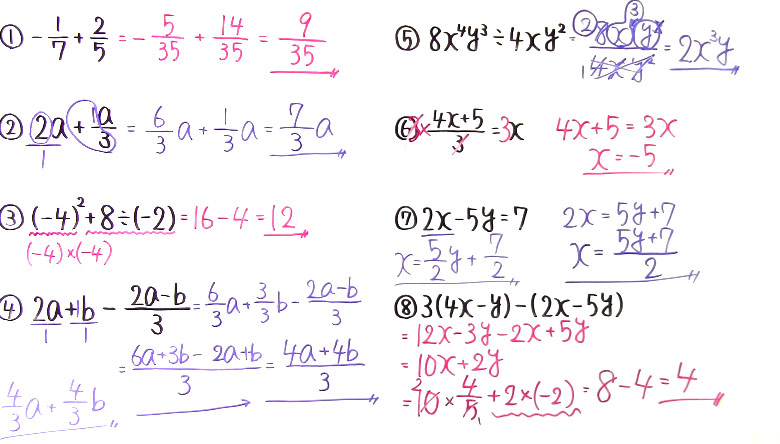 ① -1/7 + 2/5 = -5/35 + 14/35 = 9/35
② 2a + 1a/3 = 6/3 a + 1/3 a = 7/3 a
1
③ (-4)² + 8 ÷ (-2) = 16 - 4 = 12
(-4)×(-4)
④ 2a + 1b - 2a-b/3 = 6/3 a + 3/3 b - 2a-b/3
1 1
= 6a+3b-2a+b/3 = 4a+4b/3
4/3 a + 4/3 b
⑤ 8x⁴y³ ÷ 4xy² = = 2x³y
⑥ 3× 4x+5/3 = 3x 4x+5 = 3x
x = -5
⑦ 2x - 5y = 7 2x = 5y+7
x = 5/2 y + 7/2 x = 5y+7/2
⑧ 3(4x-y) - (2x-5y)
= 12x - 3y - 2x + 5y
= 10x + 2y
= 10 × 4/5 + 2×(-2) = 8 - 4 = 4
2 1